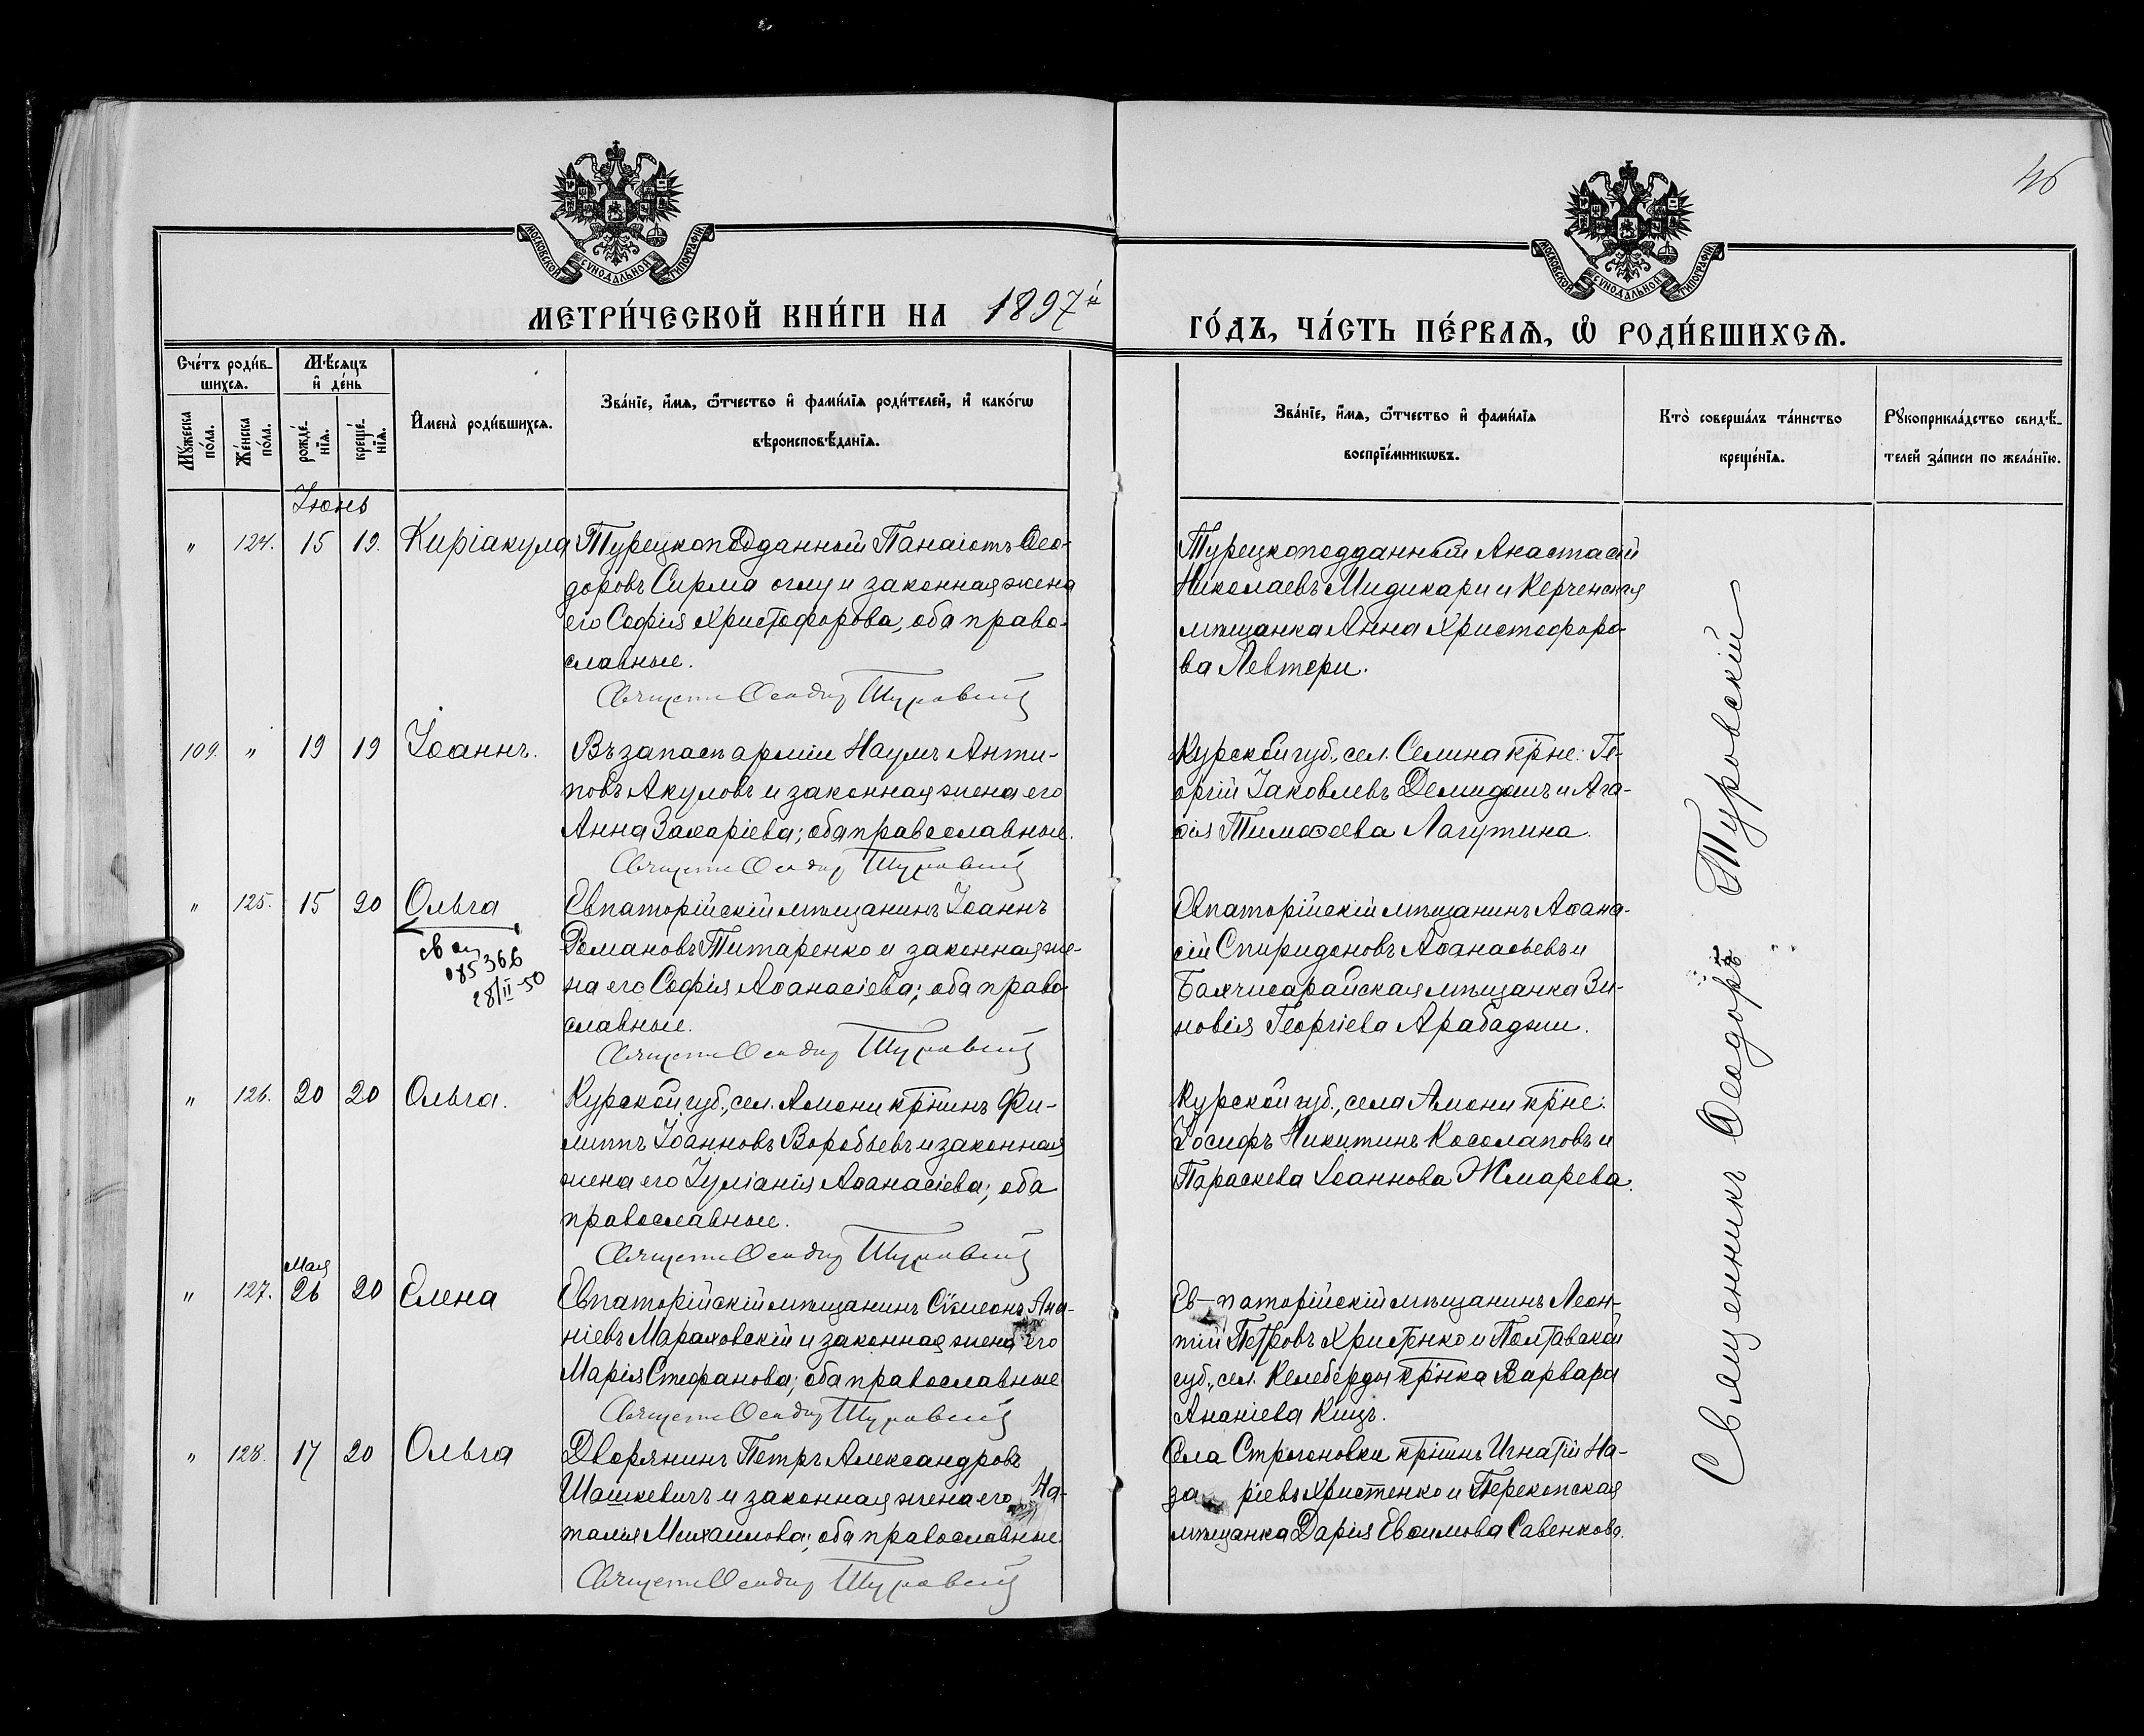 46
МОСКОВСКОЙ СѴНОДАЛЬНОЙ ТИПОГРАФІИ
МОСКОВСКОЙ СѴНОДАЛЬНОЙ ТИПОГРАФІИ
МЕТРИ́ЧЕСКОЙ КНИ́ГИ НА 1897й
ГО́ДЪ, ЧА́СТЬ ПЕ́РВАѦ, Ѡ҆ РОДИ́ВШИХСѦ.
Сче́тъ роди́в-
шихсѧ.
Мѣ́сѧцъ
и҆ де́нь
Мꙋ́жеска
по́ла.
Же́нска
по́ла.
рожде́-
нїѧ.
креще́-
нїѧ.
И҆мена̀ роди́вшихсѧ.
Зва́нїе, и҆́мѧ, ѻ҆́тчество и҆ фами́лїѧ роди́телей, и҆ како́гѡ
вѣроисповѣ́данїѧ.
Зва́нїе, и҆́мѧ, ѻ҆́тчество и҆ фами́лїѧ
воспрїе́мникѡвъ.
Кто̀ соверша́лъ та́инство
креще́нїѧ.
Рꙋкоприкла́дство свидѣ́-
телей за́писи по жела́нїю.
Іюнь
" 124. 15 19. Киріакула
Турецкоподданный Панаіотъ Ѳео-
доровъ Сирма оглу и законная жена
его Софія Христофорова, оба право-
славные.
Священ Ѳеодоръ Туровскій
Турецкоподданный Анастасій
Николаевъ Мидикари и Керченская
мѣщанка Анна Христофоро-
ва Левтери.
109. " 19 19 Іоаннъ.
Въ запасѣ арміи Наумъ Анти-
повъ Акуловъ и законная жена его
Анна Захаріева; оба православные.
Священ Ѳеодоръ Туровскій
Курской губ., сел. Селина кр̃не: Ге-
оргій Іаковлевъ Демидовъ и Ага-
ѳія Тимоѳеева Лагутина.
" 125. 15 20 Ольга
св
085366
28/II-50
Евпаторійскій мѣщанинъ Іоаннъ
Романовъ Титаренко и законная же-
на его Софія Аѳанасіева; оба право-
славные.
Священ Ѳеодоръ Туровскій
Евпаторійскій мѣщанинъ Аѳана-
сій Спиридоновъ Аѳанасьевъ и
Бахчисарайская мѣщанка Зи-
новія Георгіева Арабаджи.
" 126. 20 20 Ольга.
Курской губ., сел. Амони кр̃нинъ Фи-
липпъ Іоанновъ Воробьевъ и законная
жена его Іуліанія Аѳанасіева; оба
православные.
Священ Ѳеодоръ Туровскій
Курской губ., села Амони кр̃не:
Іосифъ Никитинъ Косолаповъ и
Параскева Іоаннова Жмарева.
Мая
" 127. 26 20 Елена
Евпаторійскій мѣщанинъ Сѵмеонъ Ана-
ніевъ Мараховскій и законная жена его
Марія Стефанова; оба православные
Священ Ѳеодоръ Туровскій
Ев-паторійскій мѣщанинъ Леон-
тій Петровъ Христенко и Полтавской
губ., сел. Келеберды кр̃нка Варвара
Ананіева Кицъ.
" 128. 17 20 Ольга
Дворянинъ Петръ Александровъ
Шашкевичъ и законная жена его На-
талія Михаилова; оба православные.
Священ Ѳеодоръ Туровскій
Села Строгоновки кр̃нинъ Игнатій На-
за ріевъ Христенко и Перекопская
мѣщанка Дарія Евѳимова Савенкова.
Священникъ Ѳеодоръ Туровскій